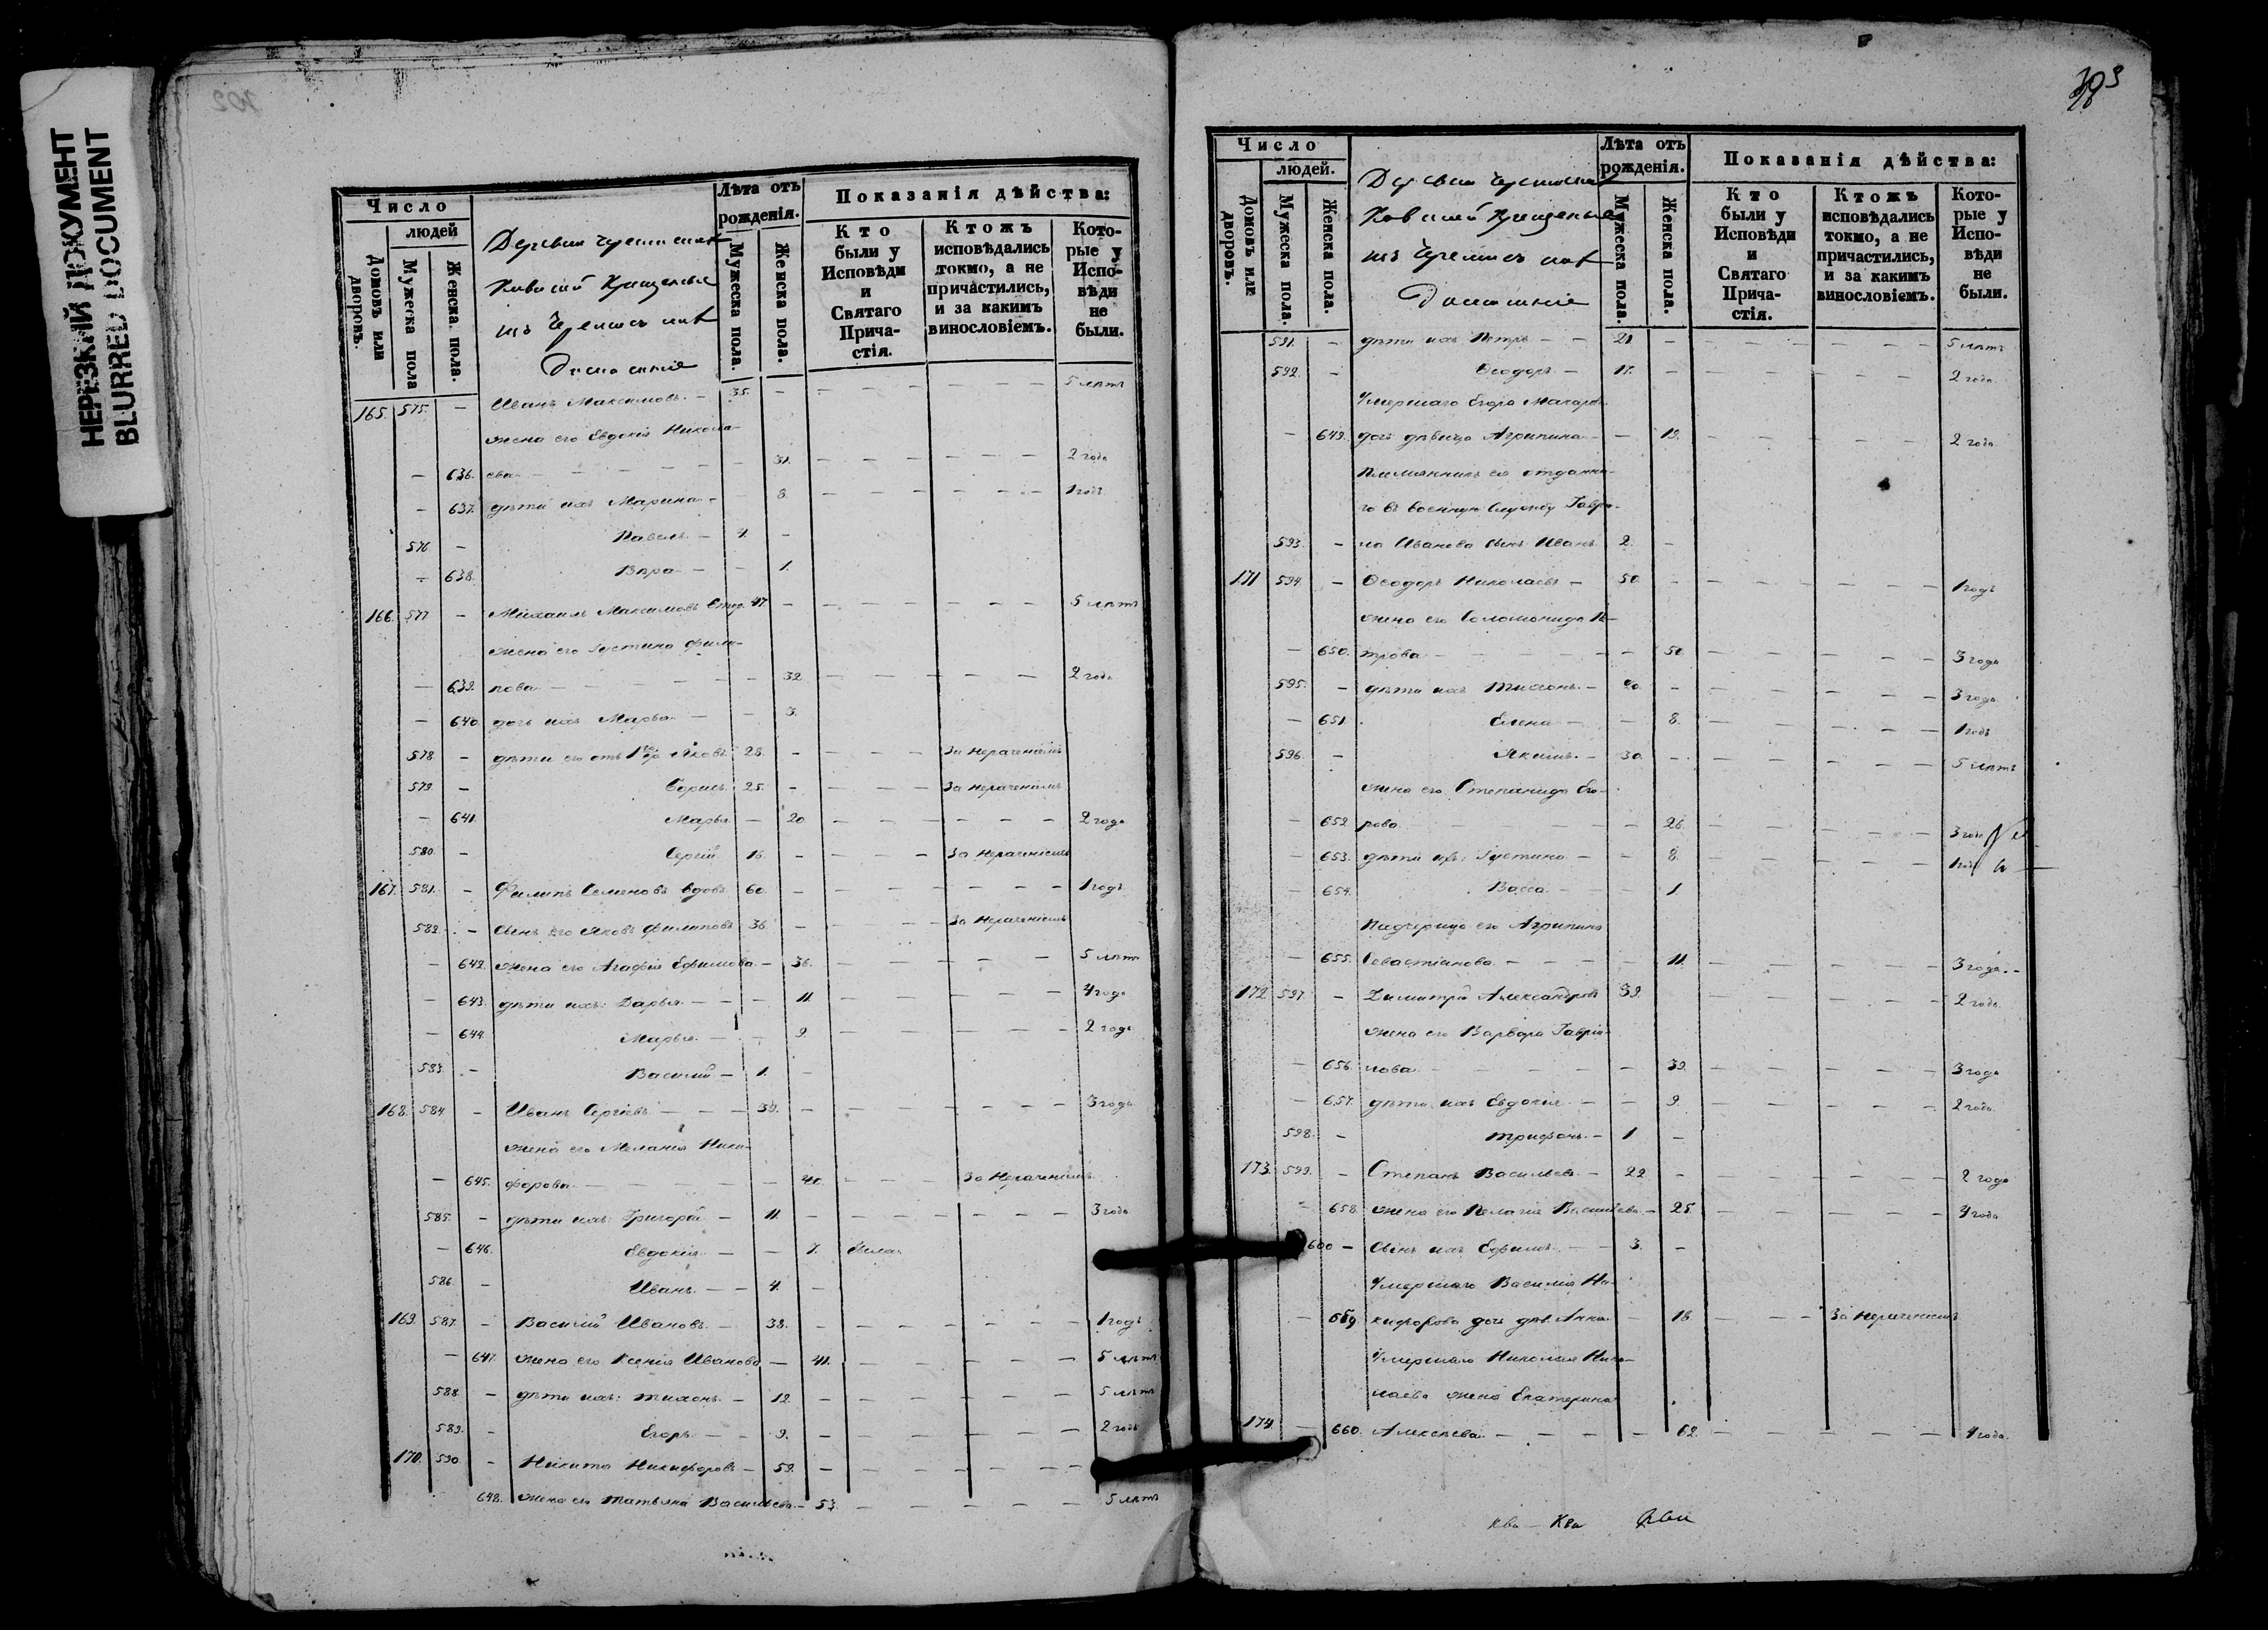 НЕРЕЗКИЙ ДОКУМЕНТ
BLURRED DOCUMENT
Число
людей
Домовъ или дворовъ.
Мужеска пола
Женска пола.
Деревня
из Черемисъ
Лѣта отъ рожденія.
Мужеска пола.
Женска пола.
Показанія дѣйства:
Кто были у Исповѣди и Святаго Прича-стія.
Ктожъ исповѣдались токмо, а не причастились, и за какимъ винословіемъ.
Кото-рые у Испо-вѣди не были.
165. 575. – Иванъ Максимовъ – 35. – 5 лѣтъ
жена его Евдокія Никола-
– 636. ева – 31. 2 года
– 637. дѣти ихъ Марина – 8. 1 годъ
576. – Павелъ – 4. –
– 638. Вѣра – – 1.
166. 577. – Михаилъ Максимовъ 47. – 5 лѣтъ
жена его Густина Фили-
– 639. пова – – 32. 2 года
– 640. дочь ихъ Марья – – 3.
578. – дѣти его отъ 1го Яковъ 28. – За нераченіемъ
579. – Борисъ 25. – За нераченіемъ
– 641. Марья – 20 2 года
580. – Сергій 16. – За нераченіемъ
167. 581. – Филипъ Семеновъ вдовъ 60. – 1 годъ
582. – Сынъ его Яковъ Филиповъ 36. – За нераченіемъ
– 642. жена его Агафія Ефимова – 36. 5 лѣтъ
– 643. дѣти ихъ: Дарья – – 11. 4 года
– 644. Марья – – 9. 2 года
583. – Василій – 1. –
168. 584. – Иванъ Сергіевъ – 39. – 3 года
жена его Меланія Ники-
– 645. форова – – 40. За нераченіемъ
585. – дѣти ихъ: Григорій – 11. – 3 года
– 646. Евдокія – – 7. была
586. – Иванъ – 4. –
169. 587. – Василій Ивановъ – 38. – 1 годъ
– 647. жена его Ксенія Иванова – 41. 5 лѣтъ
588. – дѣти ихъ: Тихонъ – 12. – 5 лѣтъ
589. – Егоръ – 9. – 2 года
170. 590. – Никита Никифоровъ – 59. –
648. жена его Татьяна Васильева – 53. 5 лѣтъ
Число
людей.
Домовъ или дворовъ.
Мужеска пола.
Женска пола.
Деревня
изъ Черемисъ
Лѣта отъ рожденія.
Мужеска пола.
Женска пола.
Показанія дѣйства:
Кто были у Исповѣди и Святаго Прича-стія.
Ктожъ исповѣдались токмо, а не причастились, и за какимъ винословіемъ.
Кото-рые у Испо-вѣди не были.
591. – дѣти ихъ Петръ – 21 – 5 лѣтъ
592. – Ѳеодоръ – 17. – 2 года
Умершаго Егора Макаров.
– 649. дочь дѣвица Агрипина – – 19. 2 года
Племянника его отданна-
го въ военную службу Гаври-
593. – ла Иванова сынъ Иванъ 2. –
171 594. – Ѳеодоръ Николаевъ – 50. – 1 годъ
жена его Соломонида Пе-
– 650. трова – – 50. 3 года
595. – дѣти ихъ Тихонъ – 20. – 3 года
– 651. Елена – – 8. 1 годъ
596. – Якимъ – 30. – 5 лѣтъ
жена его Степанида Его-
– 652. рова – – 26. 3 года
– 653. дѣти ихъ: Густина – – 8. 1 годъ
– 654. Васса – – 1
Падчерица его Агрипина
– 655. Севастіанова – – 11. 3 года
172 597. – Димитрій Александровъ 39. 2 года
жена его Варвара Гаврі-
– 656. лова – – 39. 3 года
– 657. дѣти ихъ Евдокія – – 9. 2 года
598. – Трифонъ – 1 –
173. 599. – Степанъ Васильевъ – 22 – 2 года
– 658. жена его Пелагія Васильева – 25. 4 года
600 – Сынъ ихъ Ефимъ – 3. –
Умершаго Василія Ни-
– 659 кифорова дочь дѣв. Анна – 16 За нераченіемъ
Умершаго Николая Нико-
лаева жена Екатерина
174. – 660. Алексѣева – – 62. 4 года